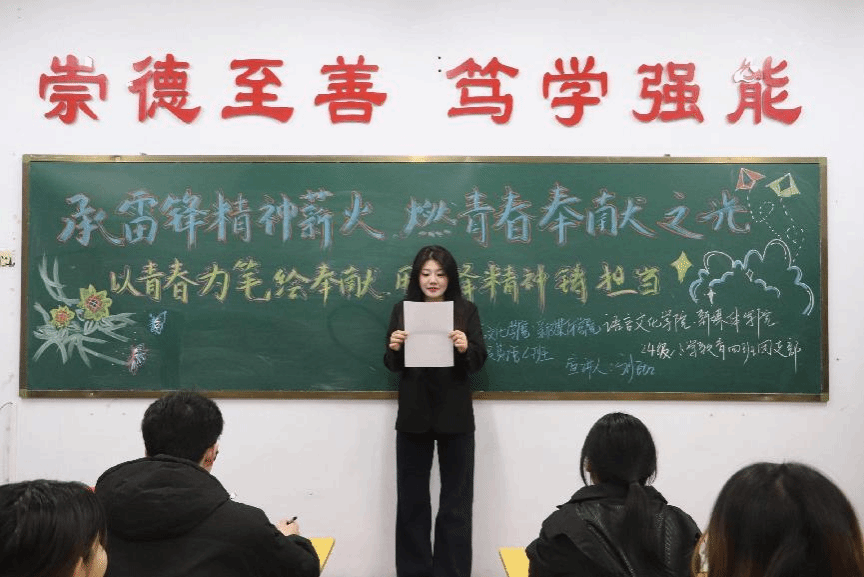 崇德至善 笃学强能
承雷锋精神薪火 燃青春奉献之光
以青春为笔绘奉献 用 锋精神铸担当
语言文化学院·新媒体学院
24级小学教育四班团支部
宣讲人: